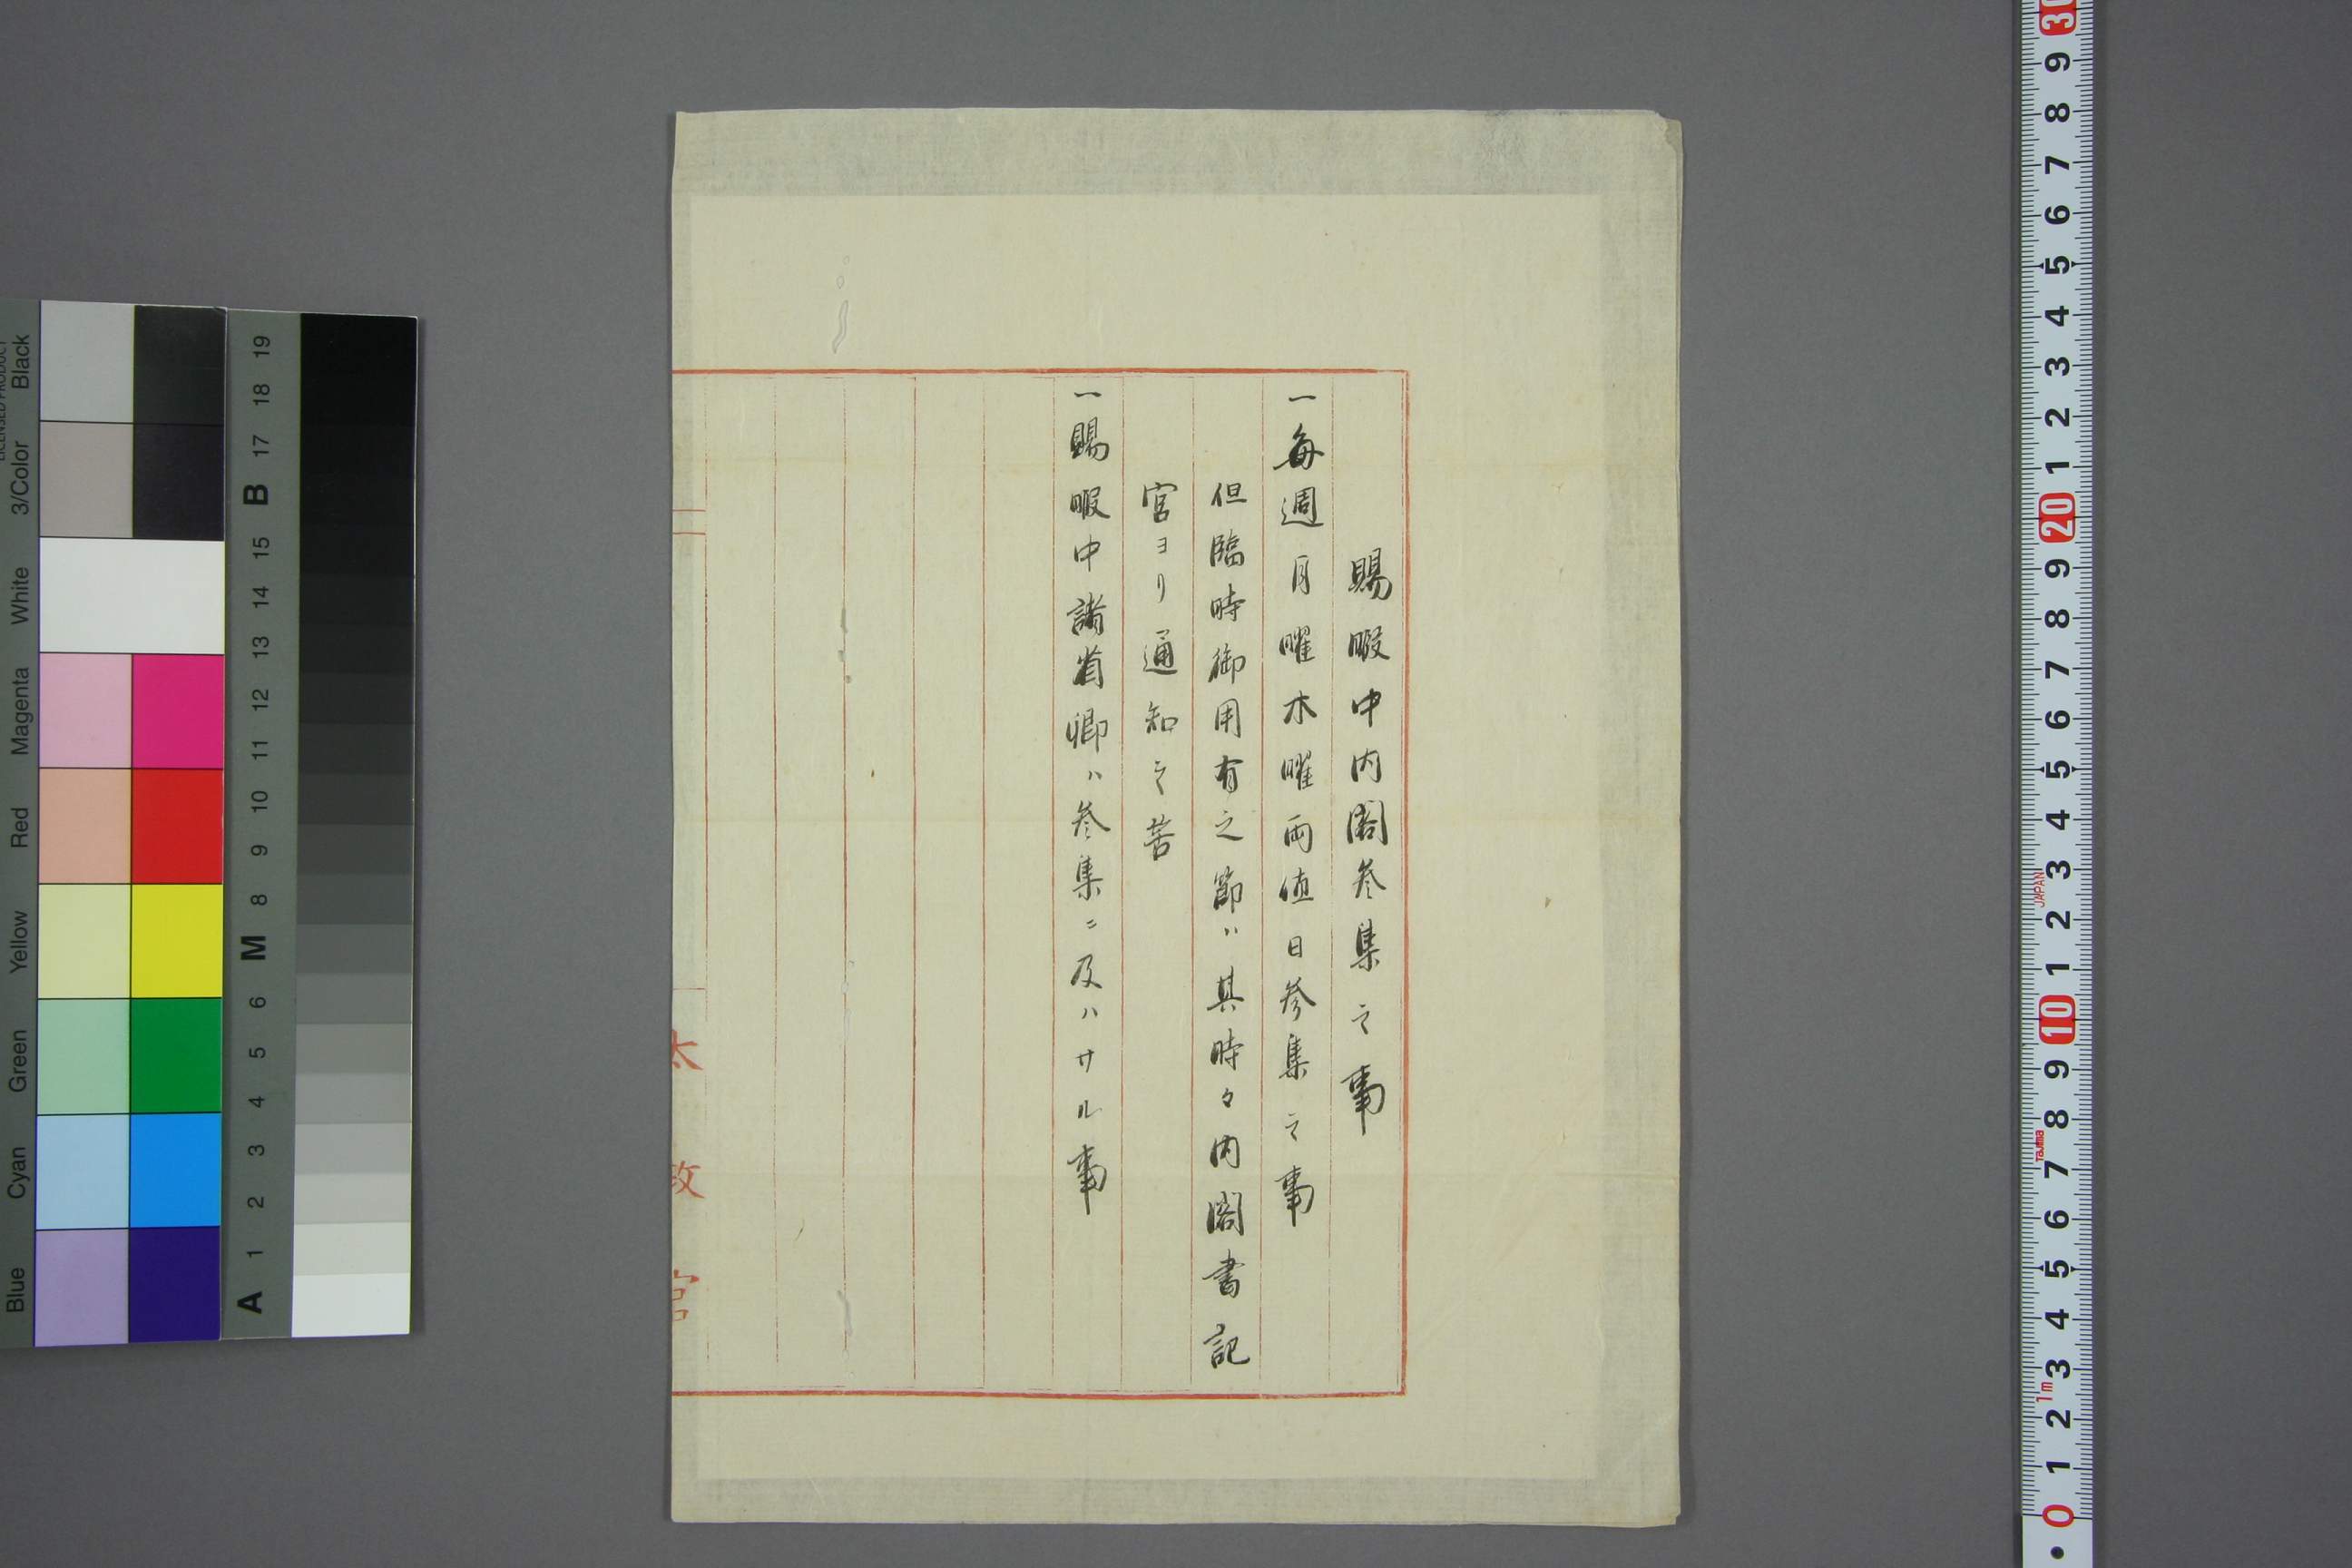 賜暇中内閣参集之事
一毎週月曜木曜両値日参集之事
但臨時御用有之節ハ其時々内閣書記
官ヨリ通知之筈
一賜暇中諸省卿ハ参集ニ及ハサル事
太政官
Blue Cyan Green Yellow Red Magenta White 3/Color Black
LICENSED PRODUCT
A 1 2 3 4 5 6 M 8 9 10 11 12 13 14 15 B 17 18 19
0 1 2 3 4 5 6 7 8 9 10 1 2 3 4 5 6 7 8 9 20 1 2 3 4 5 6 7 8 9 30
1m Tajima JAPAN